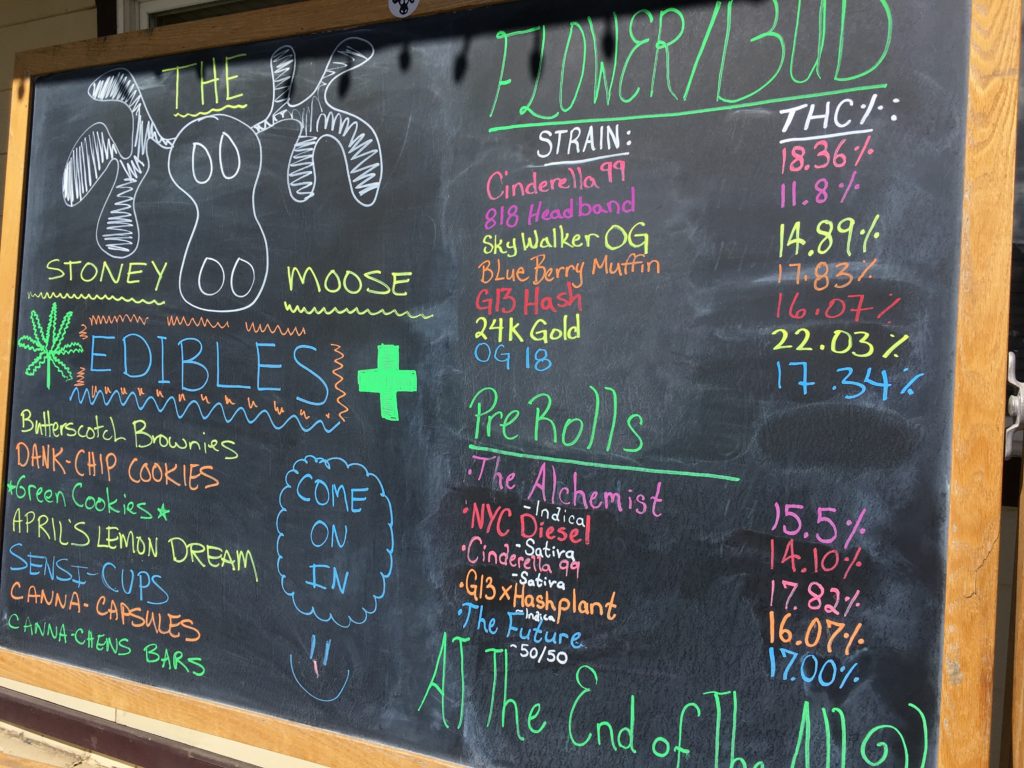 THE
STONEY MOOSE
EDIBLES
Butterscotch Brownies
DANK-CHIP COOKIES
*Green Cookies*
APRIL'S LEMON DREAM
SENSI-CUPS
CANNA-CAPSULES
CANNA-CHENS BARS
COME
ON
IN
FLOWER/BUD
STRAIN: THC%:
Cinderella 99 18.36%
818 Headband 11.8%
SkyWalker OG 14.89%
BLueBerry Muffin 17.83%
G13 Hash 16.07%
24k Gold 22.03%
OG 18 17.34%
Pre Rolls
·The Alchemist 15.5%
-Indica
·NYC Diesel 14.10%
-Sativa
·Cinderella 99 17.82%
-Sativa
·G13 x Hashplant 16.07%
-Indica
·The Future 17.00%
~50/50
AT The End of The All